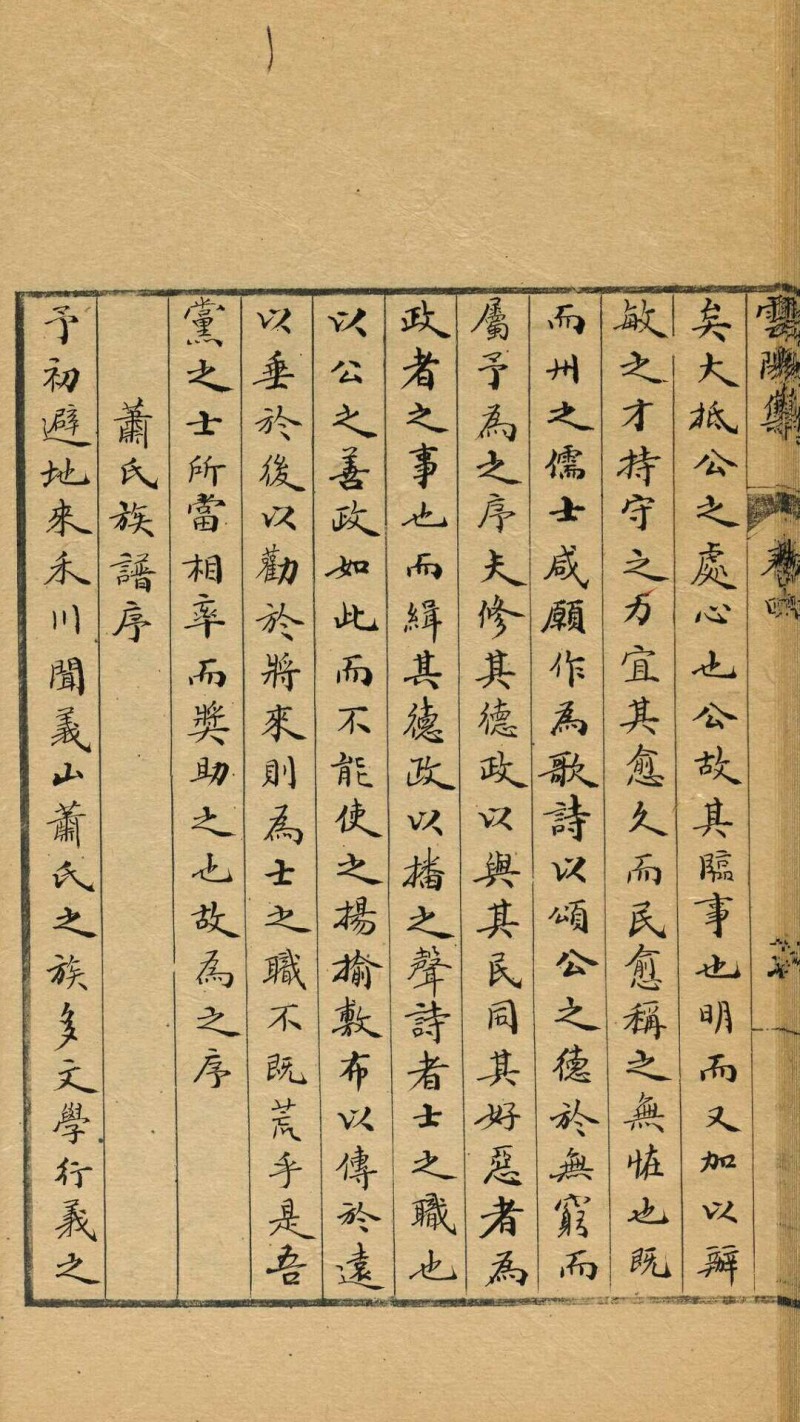 雲陽集 卷四
矣大抵公之處心也公故其臨事也明而又加以辦
敏之才持守之力宜其愈久而民愈稱之無恠也既
而州之儒士咸願作為歌詩以頌公之德於無窮而
屬予為之序夫修其德政以與其民同其好惡者為
政者之事也而緝其德政以播之聲詩者士之職也
以公之善政如此而不能使之揚揄敷布以傳於遠
以垂於後以勸於將來則為士之職不既荒乎是吾
黨之士所當相率而奬助之也故為之序
蕭氏族譜序
予初避地來禾川聞義山蕭氏之族多文學行義之